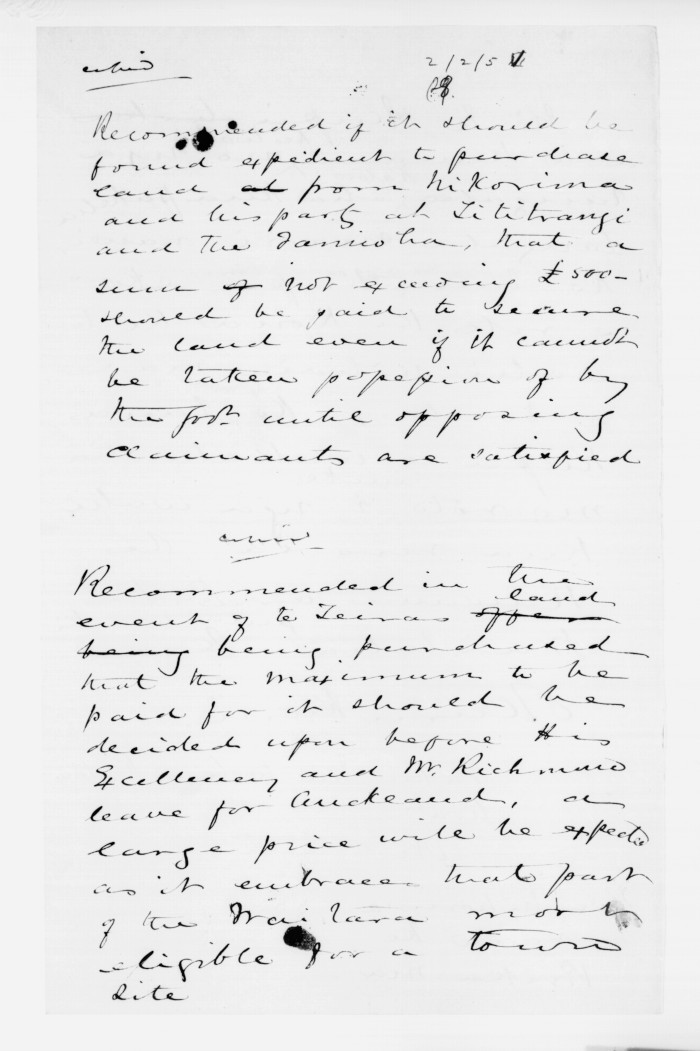 2/2/5
Recommended if it should be
found expedient to purchase
land at from Nikorima
and his party at Tititrangi
and the Taniwha, that a
sum of not exceeding £500-
should be paid to secure
the land even if it cannot
be taken possession of by
the Govt until opposing
claimants are satisfied
Recommended in the
land
event of te Teiras offer
being being purchased
that the maximum to be
paid for it should be
decided upon before His
Excellency and Mr. Richmond
leave for Auckland, a
large price will be expected
as it embraces that part
of the Waitara most
eligible for a town
site